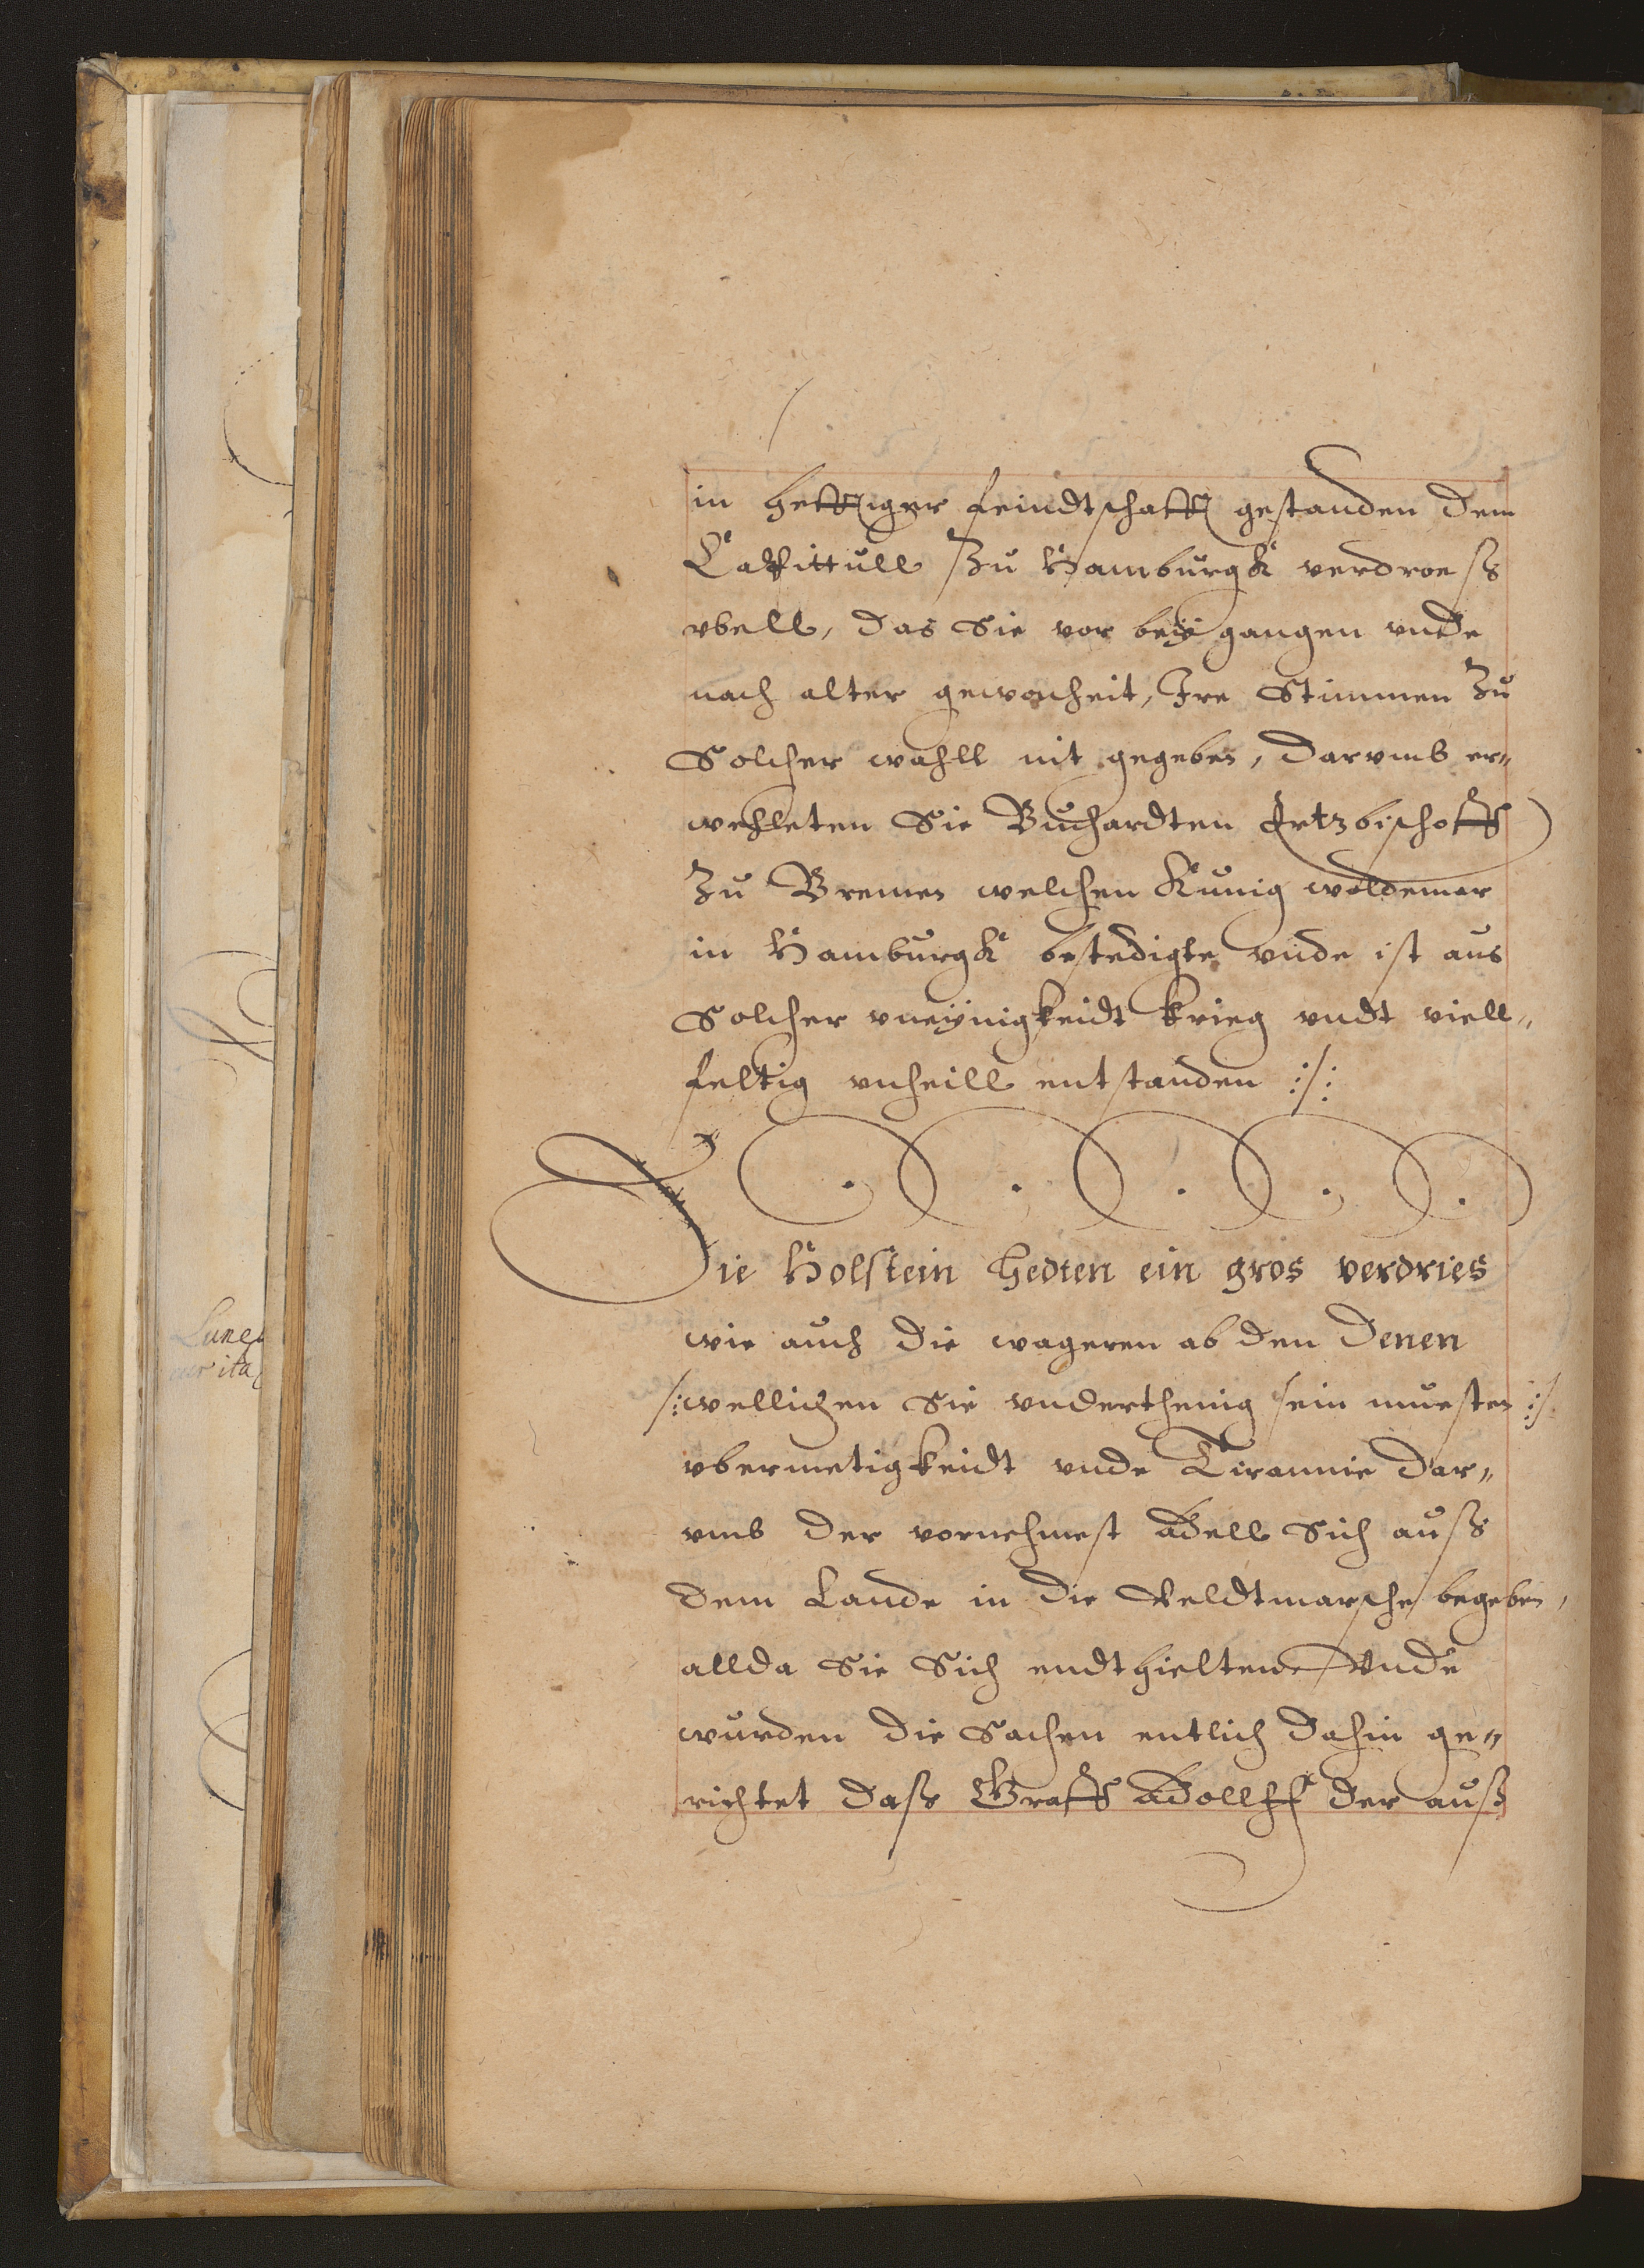 in hefftiger feindtschafft gestanden dem
Cappittull Zu Hamburgk verdroess
vbell, das Sie vor bey gangen vnde
nach alter gewonheit, Ire Stimmen Zu
Solcher wahll nit gegeben, darvmb er„
wehleten Sie Buchardten Ertzbischoff
Zu Bremen welchen Kunig woldemar
in Hamburgk bestedigte vnde ist aus
Solcher vneynigkeidt krieg vndt viell„
feltig vnheill entstanden :/:
Die Holstein hedten ein gros verdries
wie auch die wageren ab den Denen
/:wellichen Sie vnderthenig sein muesten :/
vbermetigkeidt vnde Tirannie dar„
vmb der vornehmest Adell Sich auss
dem Lande in die Veldtmarsche begeben,
allda Sie Sich endthielten Vnde
wurden die Sachen entlich dahin ge„
richtet dass Graff Adollff der auss
Lune
ita